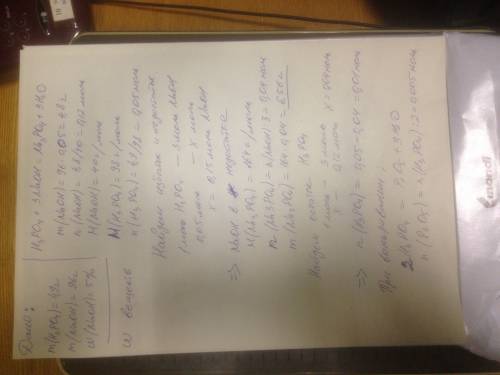 Дано:
m(H₃PO₄)=4,9г
m(NaOH)=96г
ω(NaOH)=5%
ω веществ
H₃PO₄ + 3NaOH = Na₃PO₄ + 3H₂O
m(NaOH)= 96·0,05 = 4,8г
n(NaOH)= 4,8/40 = 0,12 моль
M(NaOH)= 40 г/моль
M(H₃PO₄)= 98 г/моль
n(H₃PO₄)= 4,9/98 = 0,05 моль
Найдём избыток и недостаток
1 моль H₃PO₄ — 3 моль NaOH
0,05 моль — x моль
x = 0,15 моль NaOH
⇒ NaOH в недостатке
M(Na₃PO₄)= 164 г/моль
n(Na₃PO₄)= n(NaOH):3 = 0,04 моль
m(Na₃PO₄)= 164·0,04 = 6,56г
Найдём остаток H₃PO₄
1 моль — 3 моль
x — 0,12 моль x=0,04 моль
⇒ n(H₃PO₄)= 0,05-0,04 = 0,01 моль
При
2H₃PO₄ = P₂O₅ + 3H₂O
n(P₂O₅) = n(H₃PO₄):2 = 0,005 моль